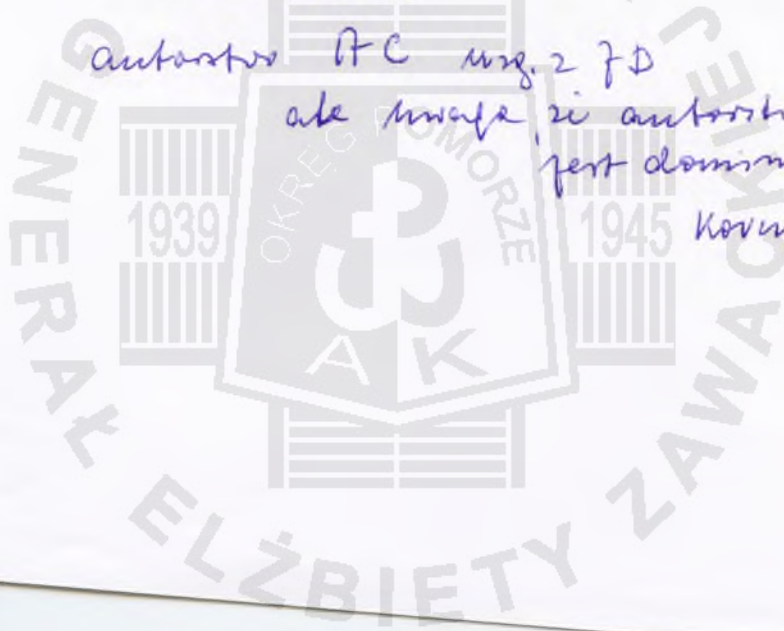 autorstwo AC wzg. z JD
ale uwaga, że autorst
jest domin
Korn
OKRĘG POMORZE
1939
1945
AK
GENERAŁ ELŻBIETY ZAWACKIEJ